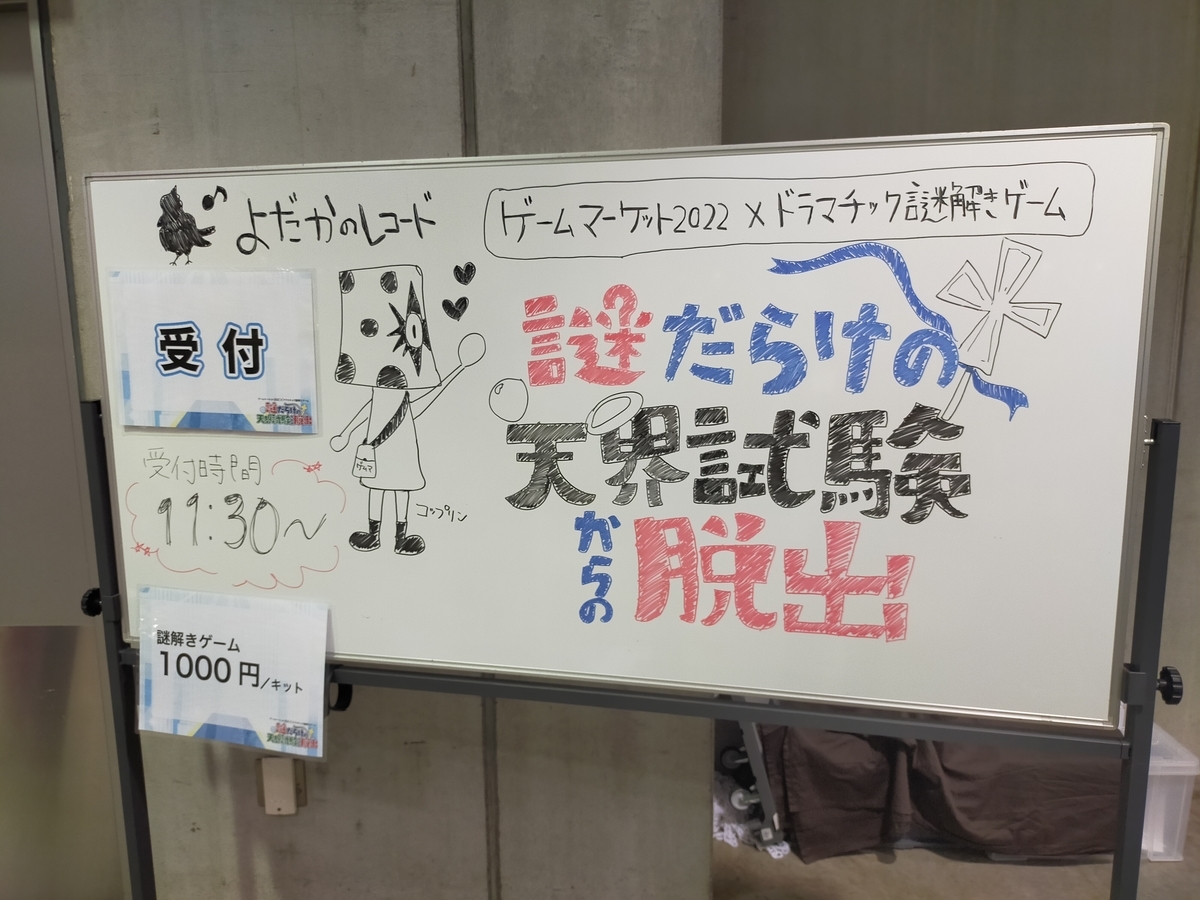 よだかのレコード
ゲームマーケット2022×ドラマチック謎解きゲーム
受付
謎だらけの
天界試験
からの脱出
受付時間
11:30~
ゲムマ
コップリン
謎解きゲーム
1000円/キット